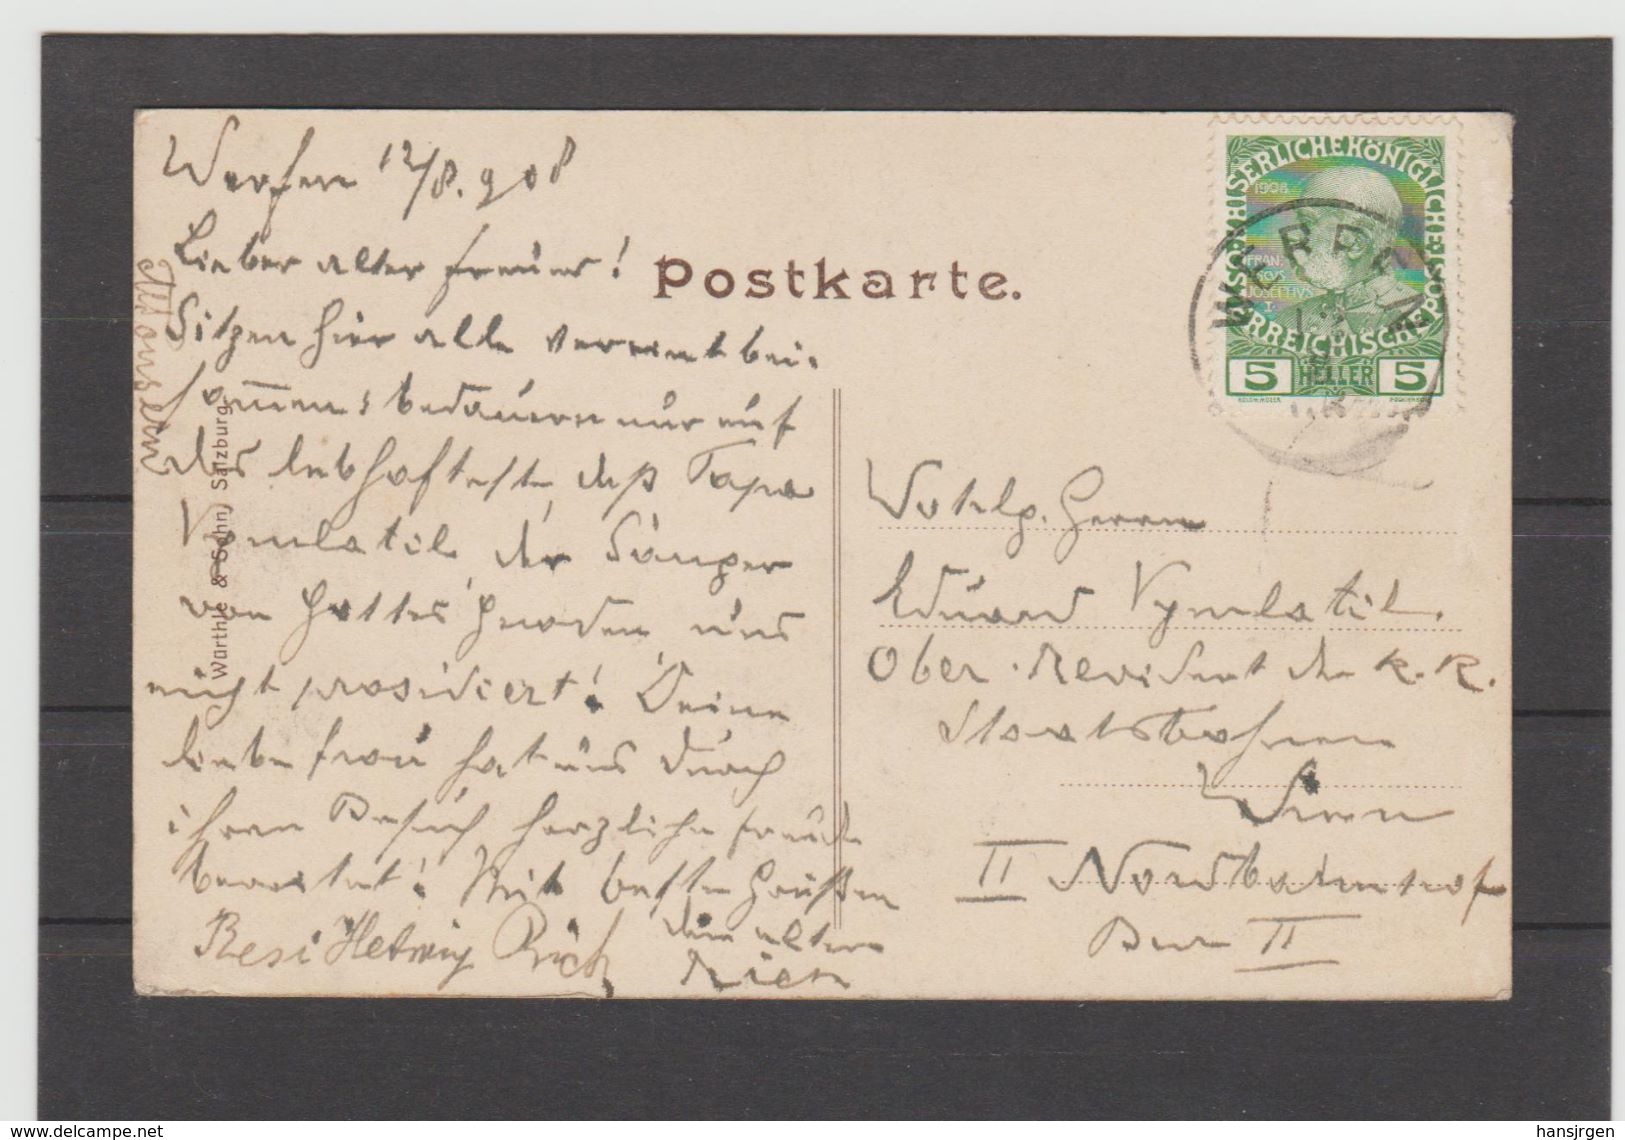 Werfen 12/8. 908
Lieber alter Freund!
Sitzen hier alle vereint bei-
sammen & bedauern nur auf
das lebhafteste, daß Papa
Vymlatil, der Sänger
von Gottes Gnaden uns
nicht präsidiert! Deine
liebe Frau hat uns durch
ihren Besuch herzliche Freude
bereitet! Mit besten Grüßen
dein alter
Resi Hedwig
Würthle & Sohn, Salzburg.
Postkarte.
KAISERLICHE KÖNIGLICHE ÖSTERREICHISCHE POST
1908
FRANCISCVS JOSEPHVS I.
5 HELLER 5
WERFEN
Wohlg. Herrn
Eduard Vymlatil.
Ober-Revident der K. K.
Staatsbahnen
Wien
II Nordbahnhof
Bur II
www.delcampe.net
hansjrgen